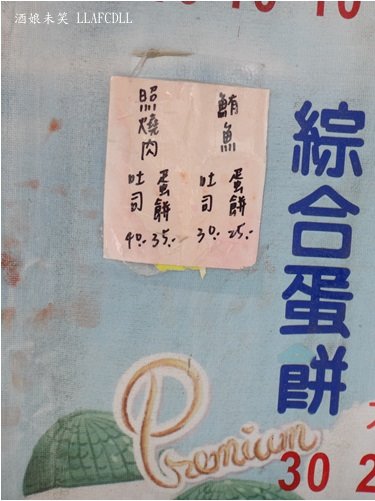 酒娘未笑 LLAFCDLL
10 10 10
鮪魚
蛋餅 25.-
吐司 30.-
照燒肉
蛋餅 35.-
吐司 40.-
綜合蛋餅
30
Premium